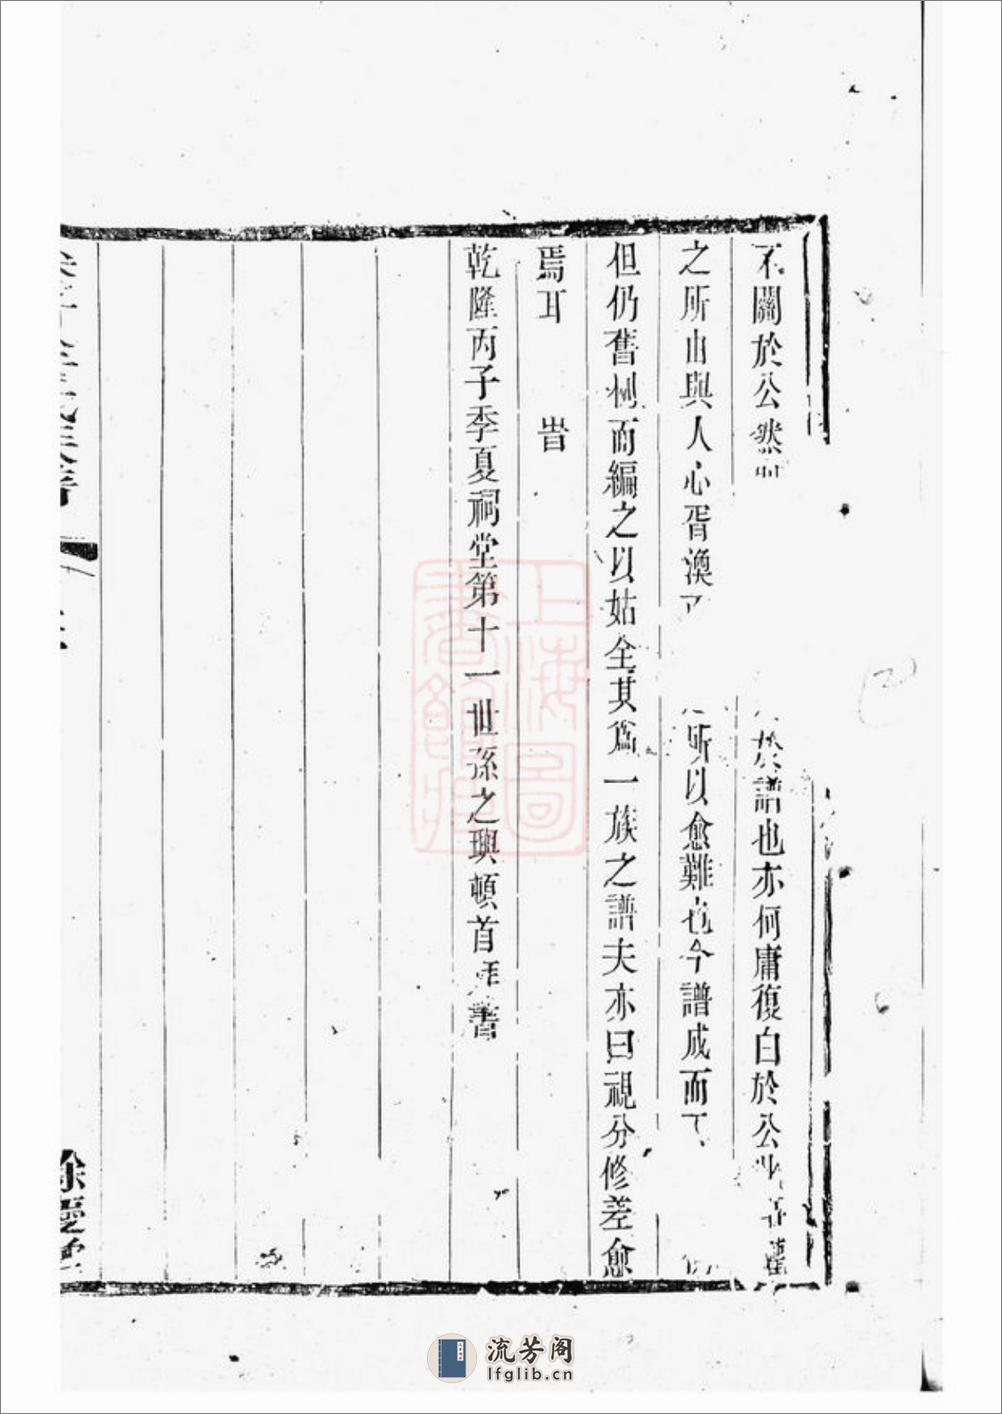 不關於公然
族譜也亦何庸復白於公
之所由與人心胥渙
所以愈難也今譜成而
但仍舊例而編之以姑全其為一族之譜夫亦曰視分修差愈
焉耳 旹
乾隆丙子季夏祠堂第十一世孫之璵頓首拜書
餘慶堂
上海圖書館藏
流芳阁
lfglib.cn